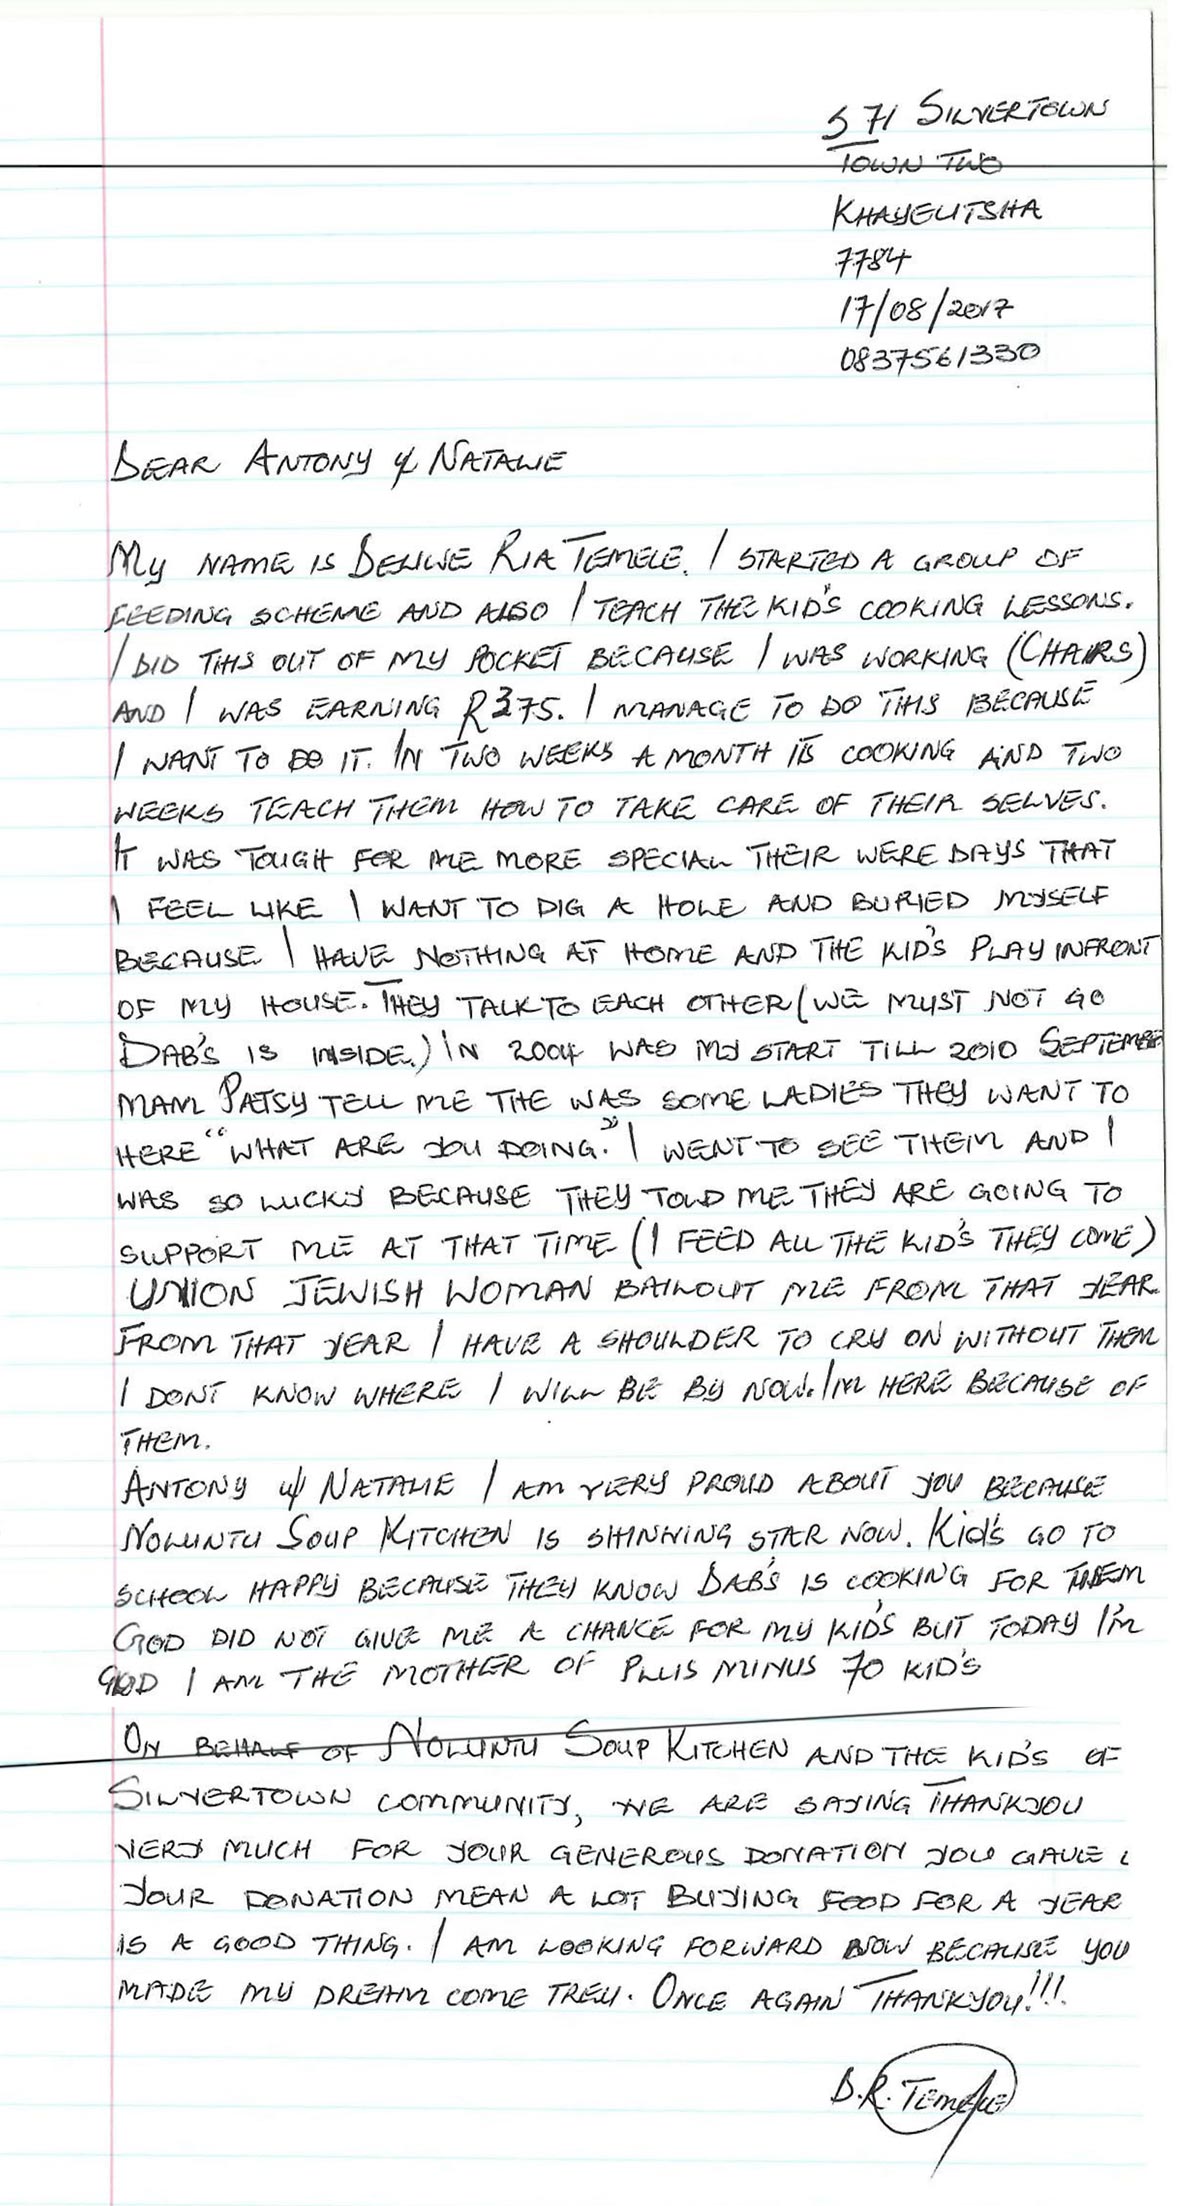 S 71 SILVERTOWN
TOWN TWO
KHAYELITSHA
7784
17/08/2017
0837561330
DEAR ANTONY & NATALIE
MY NAME IS DELIWE RIA TEMELE. I STARTED A GROUP OF
FEEDING SCHEME AND ALSO I TEACH THE KID'S COOKING LESSONS.
I DID THIS OUT OF MY POCKET BECAUSE I WAS WORKING (CHAIRS)
AND I WAS EARNING R375. I MANAGE TO DO THIS BECAUSE
I WANT TO DO IT. IN TWO WEEKS A MONTH IS COOKING AND TWO
WEEKS TEACH THEM HOW TO TAKE CARE OF THEIR SELVES.
IT WAS TOUGH FOR ME MORE SPECIAL THEIR WERE DAYS THAT
I FEEL LIKE I WANT TO DIG A HOLE AND BURIED MYSELF
BECAUSE I HAVE NOTHING AT HOME AND THE KID'S PLAY INFRONT
OF MY HOUSE. THEY TALK TO EACH OTHER (WE MUST NOT GO
DAB'S IS INSIDE.) IN 2004 WAS MY START TILL 2010 SEPTEMBER
MAM PATSY TELL ME THE WAS SOME LADIES THEY WANT TO
HERE "WHAT ARE YOU DOING." I WENT TO SEE THEM AND I
WAS SO LUCKY BECAUSE THEY TOLD ME THEY ARE GOING TO
SUPPORT ME AT THAT TIME (I FEED ALL THE KID'S THEY COME)
UNION JEWISH WOMAN BAILOUT ME FROM THAT YEAR.
FROM THAT YEAR I HAVE A SHOULDER TO CRY ON WITHOUT THEM
I DONT KNOW WHERE I WILL BE BY NOW. I'M HERE BECAUSE OF
THEM.
ANTONY & NATALIE I AM VERY PROUD ABOUT YOU BECAUSE
NOLUNTU SOUP KITCHEN IS SHINNING STAR NOW. Kid's GO TO
SCHOOL HAPPY BECAUSE THEY KNOW DAB'S IS COOKING FOR THEM
GOD DID NOT GIVE ME A CHANCE FOR MY KID'S BUT TODAY I'M
GLAD I AM THE MOTHER OF PLUS MINUS 70 KID'S
ON BEHALF OF NOLUNTU SOUP KITCHEN AND THE KID'S OF
SILVERTOWN COMMUNITY, WE ARE SAYING THANKYOU
VERY MUCH FOR YOUR GENEROUS DONATION YOU GAVE
YOUR DONATION MEAN A LOT BUYING FOOD FOR A YEAR
IS A GOOD THING. I AM LOOKING FORWARD NOW BECAUSE YOU
MADE MY DREAM COME TREU. ONCE AGAIN THANKYOU!!!
D.R. TEMELE